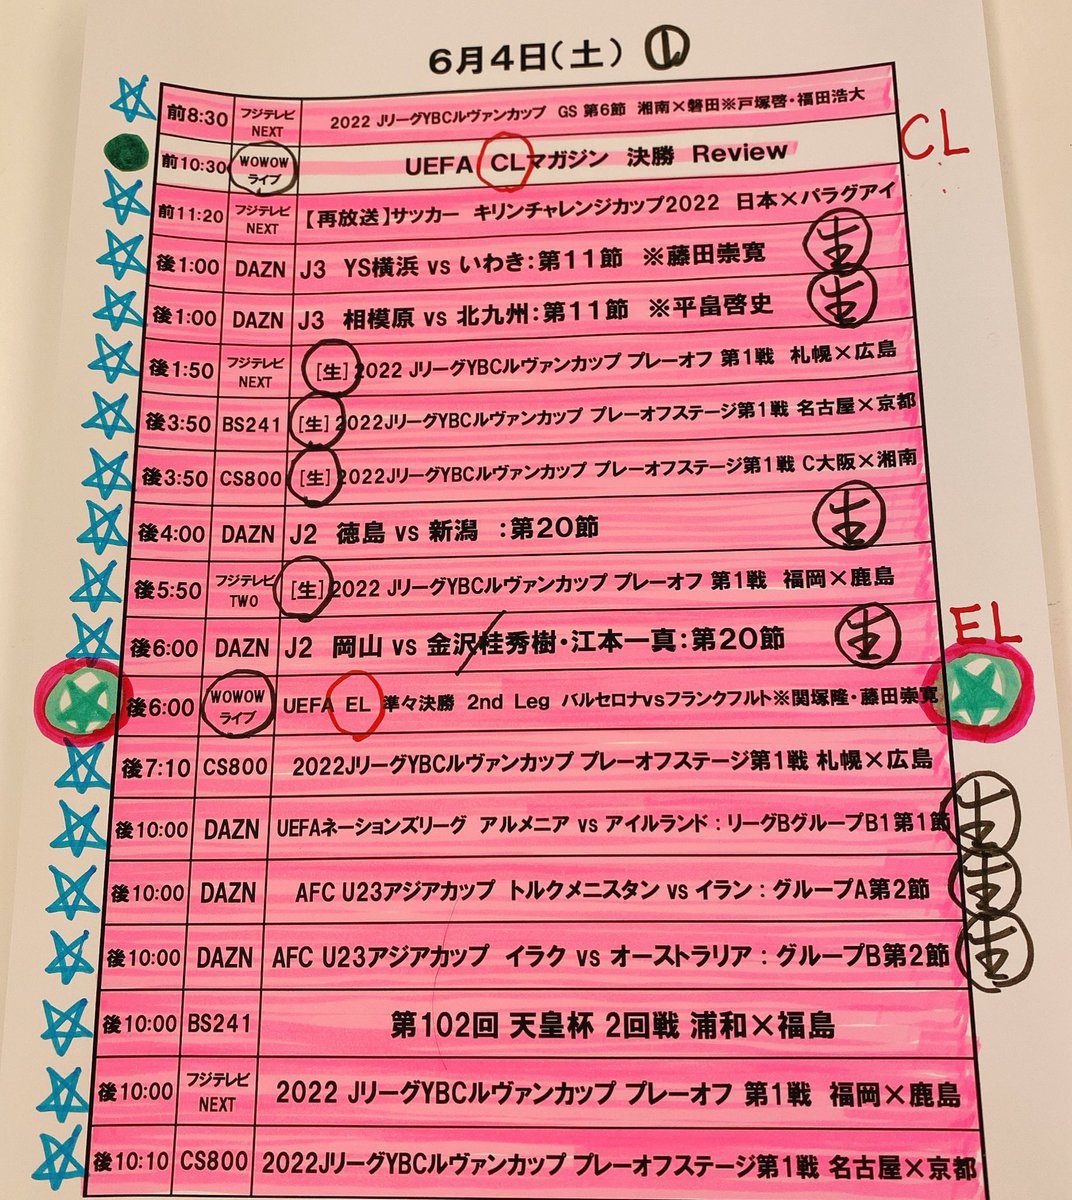 6月4日(土) ①
前8:30 フジテレビNEXT 2022 JリーグYBCルヴァンカップ GS 第6節 湘南×磐田※戸塚啓・福田浩大
CL
前10:30 WOWOWライブ UEFA CLマガジン 決勝 Review
前11:20 フジテレビNEXT 【再放送】サッカー キリンチャレンジカップ2022 日本×パラグアイ
後1:00 DAZN J3 YS横浜 vs いわき:第11節 ※藤田崇寛 生
後1:00 DAZN J3 相模原 vs 北九州:第11節 ※平畠啓史 生
後1:50 フジテレビNEXT [生]2022 JリーグYBCルヴァンカップ プレーオフ 第1戦 札幌×広島
後3:50 BS241 [生]2022JリーグYBCルヴァンカップ プレーオフステージ第1戦 名古屋×京都
後3:50 CS800 [生]2022JリーグYBCルヴァンカップ プレーオフステージ第1戦 C大阪×湘南
後4:00 DAZN J2 徳島 vs 新潟 :第20節 生
後5:50 フジテレビTWO [生]2022 JリーグYBCルヴァンカップ プレーオフ 第1戦 福岡×鹿島
後6:00 DAZN J2 岡山 vs 金沢/桂秀樹・江本一真:第20節 生
EL
後6:00 WOWOWライブ UEFA EL 準々決勝 2nd Leg バルセロナvsフランクフルト※関塚隆・藤田崇寛
後7:10 CS800 2022JリーグYBCルヴァンカップ プレーオフステージ第1戦 札幌×広島
後10:00 DAZN UEFAネーションズリーグ アルメニア vs アイルランド:リーグBグループB1第1節 生
後10:00 DAZN AFC U23アジアカップ トルクメニスタン vs イラン:グループA第2節 生
後10:00 DAZN AFC U23アジアカップ イラク vs オーストラリア:グループB第2節 生
後10:00 BS241 第102回 天皇杯 2回戦 浦和×福島
後10:00 フジテレビNEXT 2022 JリーグYBCルヴァンカップ プレーオフ 第1戦 福岡×鹿島
後10:10 CS800 2022JリーグYBCルヴァンカップ プレーオフステージ第1戦 名古屋×京都